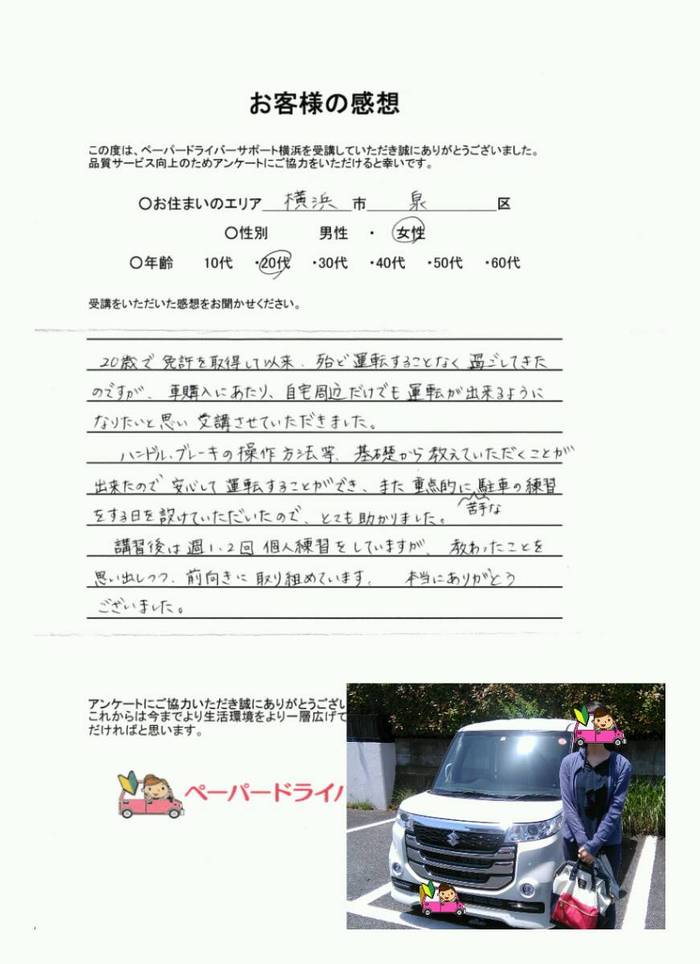 お客様の感想
この度は、ペーパードライバーサポート横浜を受講していただき誠にありがとうございました。
品質サービス向上のためアンケートにご協力をいただけると幸いです。
〇お住まいのエリア 横浜 市 泉 区
〇性別 男性 ・ 女性
〇年齢 10代 ・20代 ・30代 ・40代 ・50代 ・60代
受講をいただいた感想をお聞かせください。
20歳で免許を取得して以来、殆ど運転することなく過ごしてきた
のですが、車購入にあたり、自宅周辺だけでも運転が出来るように
なりたいと思い受講させていただきました。
ハンドル、ブレーキの操作方法等、基礎から教えていただくことが
出来たので安心して運転することができ、また重点的に駐車の練習
苦手な
をする日を設けていただいたので、とても助かりました。
講習後は週1、2回個人練習をしていますが、教わったことを
思い出しつつ、前向きに取り組めています。 本当にありがとう
ございました。
アンケートにご協力いただき誠にありがとうござい
これからは今までより生活環境をより一層広げて
だければと思います。
ペーパードライバ